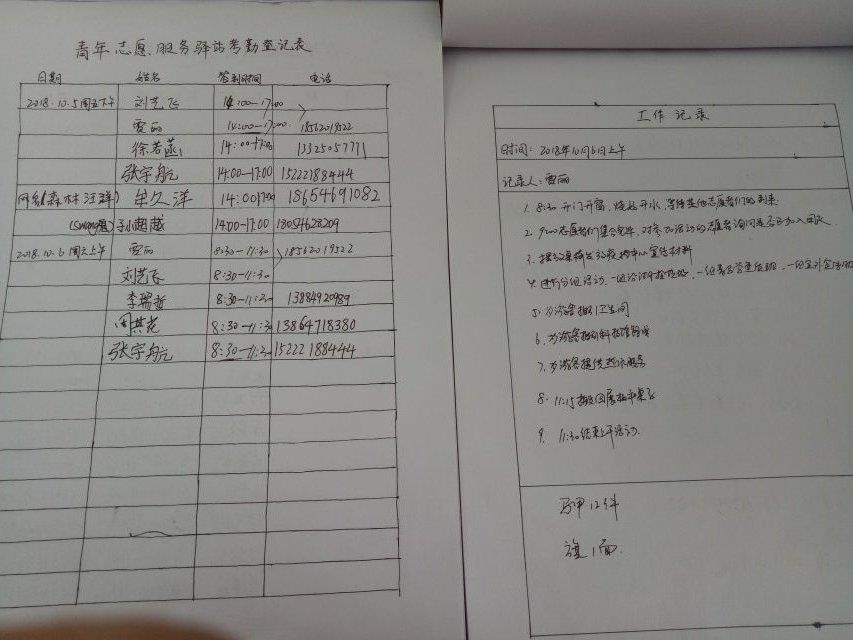 青年志愿服务驿站考勤登记表
日期 姓名 签到时间 电话
2018.10.5周五下午 刘艺飞 14:00-17:00
雯丽 14:00-17:00 18562019522
徐若菡 14:00-17:00 13325057771
张宇航 14:00-17:00 15222188444
森林 牟久洋 14:00 17:00 18654691082
孙超越 14:00-17:00 18054628209
2018.10.6周六上午 雯丽 8:30-11:30 18562019522
刘艺飞 8:30-11:30
李瑞哲 8:30-11:30 13884920989
周其龙 8:30-11:30 13864718380
张宇航 8:30-11:30 15222188444
工作记录
时间: 2018年10月6日上午
记录人: 雯丽
1. 8:30 开门开窗, 烧好开水, 等待其他志愿者们的到来
2. 9:00志愿者们集合完毕, 对参加活动的志愿者询问是否已加入团队
3. 宣传材料
4. 进行分组活动, 一组 一组 一组
5. 为游客指引卫生间
6. 为游客
7. 为游客提供 服务
8. 11:15
9. 11:30结束上午活动.
马甲12件
旗1面.